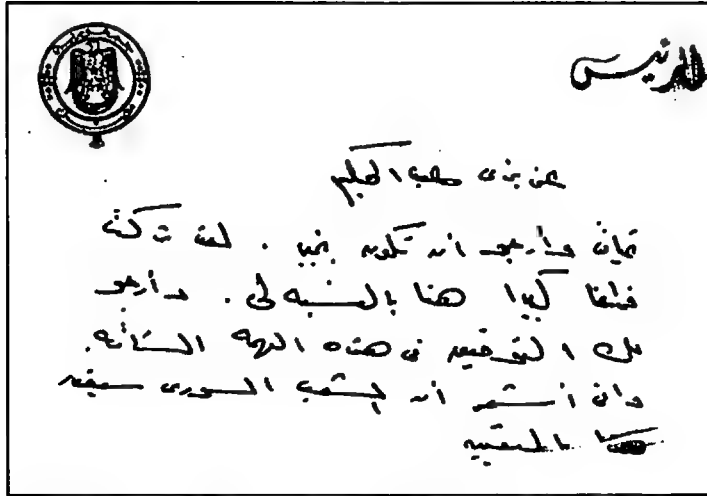 الرئيس
عزيزى عبد الحكيم
تحياتى وأرجو أن تكون بخير . لقد تركت
فراغا كبيرا هنا بالنسبة لى . وأرجو
لك التوفيق فى هذه المهمة الشاقة .
وانى أشعر أن الشعب السورى سيقدر